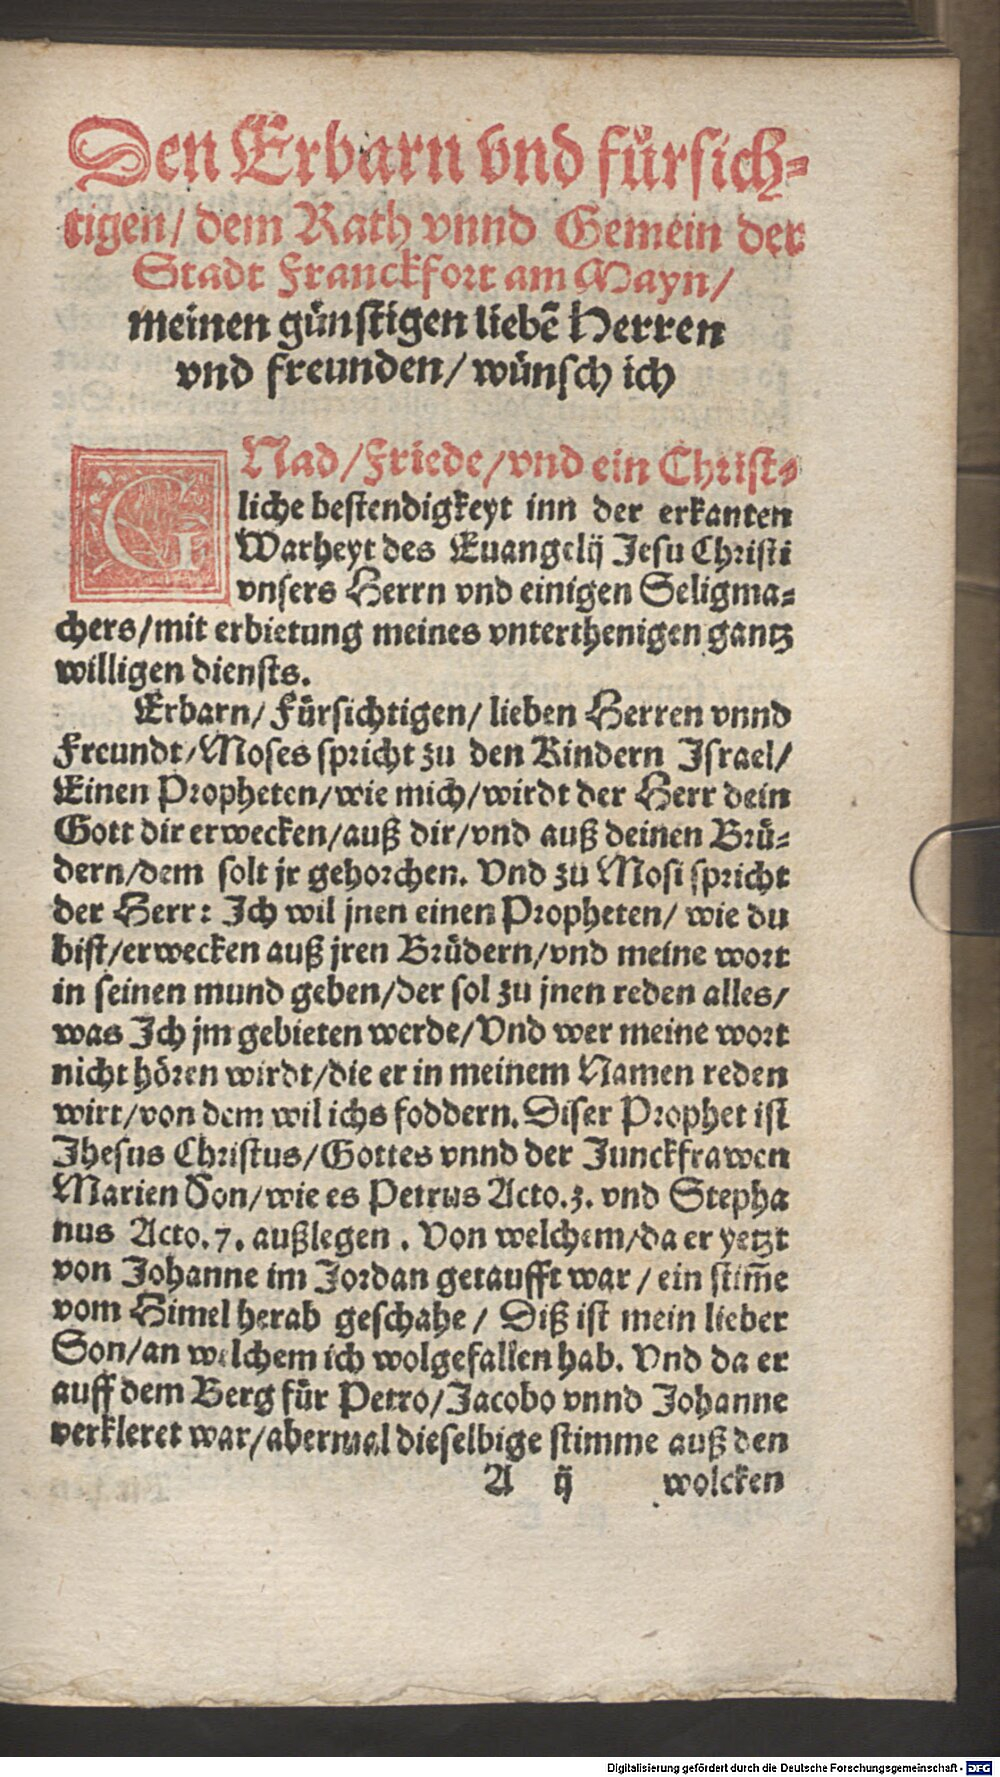 Den Erbarn vnd fürsich-
tigen/ dem Rath vnnd Gemein der
Stadt Franckfort am Mayn/
meinen günstigen liebẽ Herren
vnd freunden/ wünsch ich
GNad/Friede/vnd ein Christ-
liche bestendigkeyt inn der erkanten
Warheyt des Euangelij Jesu Christi
vnsers Herrn vnd einigen Seligma-
chers/mit erbietung meines vnterthenigen gantz
willigen diensts.
Erbarn/ Fürsichtigen/ lieben Herren vnnd
Freundt/Moses spricht zu den Kindern Israel/
Einen Propheten/wie mich/wirdt der Herr dein
Gott dir erwecken/auß dir/vnd auß deinen Brü-
dern/dem solt jr gehorchen. Vnd zu Mosi spricht
der Herr: Ich wil jnen einen Propheten/ wie du
bist/erwecken auß jren Brüdern/vnd meine wort
in seinen mund geben/der sol zu jnen reden alles/
was Ich jm gebieten werde/Vnd wer meine wort
nicht hören wirdt/die er in meinem Namen reden
wirt/von dem wil ichs foddern. Diser Prophet ist
Jhesus Christus/Gottes vnnd der Junckfrawen
Marien Son/wie es Petrus Acto.3. vnd Stepha
nus Acto.7. außlegen. Von welchem/da er yetzt
von Johanne im Jordan getaufft war/ ein stim̃e
vom Himel herab geschahe/ Diß ist mein lieber
Son/an welchem ich wolgefallen hab. Vnd da er
auff dem Berg für Petro/Jacobo vnnd Johanne
verkleret war/abermal dieselbige stimme auß den
A ij wolcken
Digitalisierung gefördert durch die Deutsche Forschungsgemeinschaft - DFG